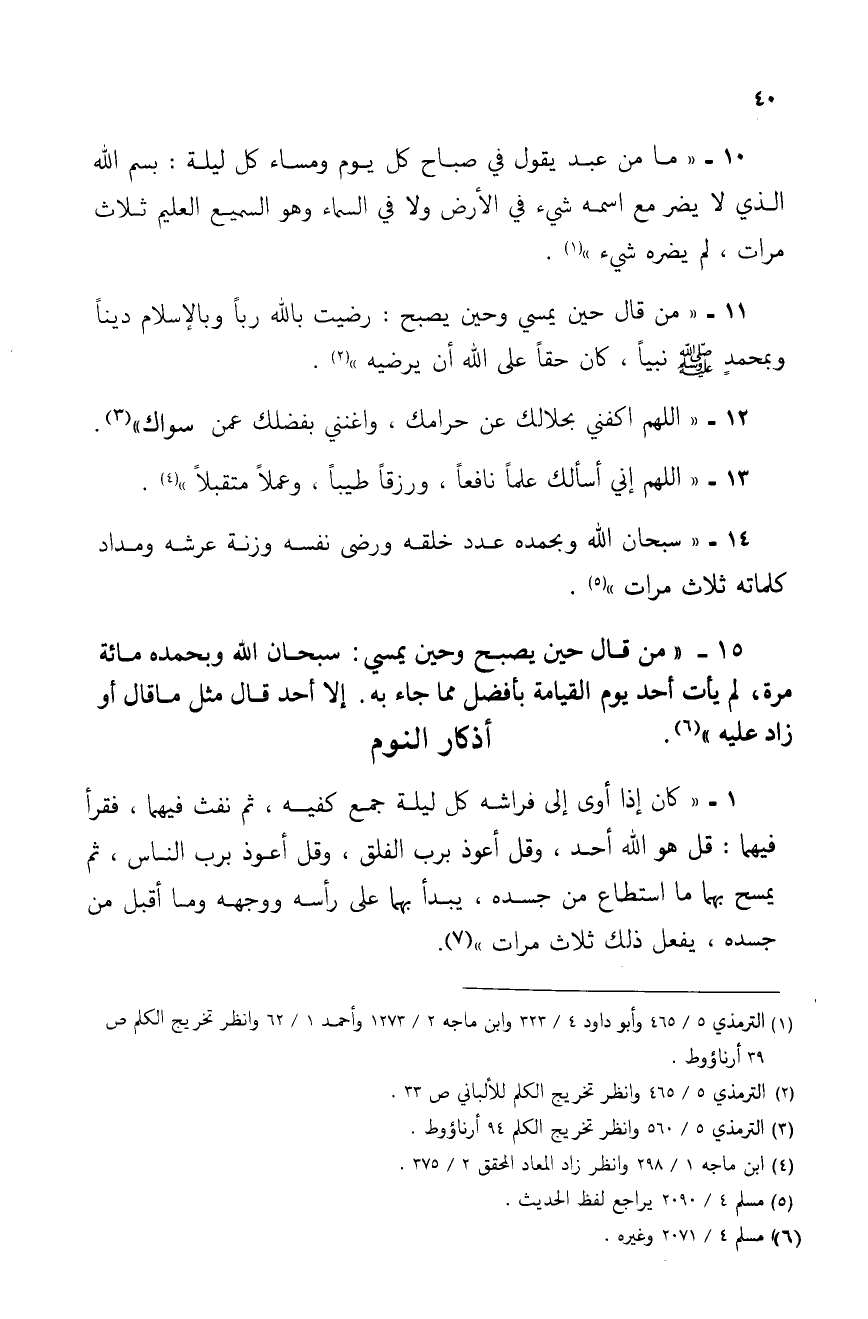 ٤٠
١٠ ـ « مـا من عبـد يقول في صبـاح كل يـوم ومسـاء كل ليلـة : بسم الله
الـذي لا يضر مع اسمـه شيء في الأرض ولا في السماء وهو السميـع العليم ثـلاث
مرات ، لم يضره شيء »(١) .
١١ ـ « من قال حين يمسي وحين يصبح : رضيت بالله رباً وبالإسلام دينـاً
وبمحمدٍ ﷺ نبياً ، كان حقاً على الله أن يرضيه »(٢) .
١٢ ـ « اللهم اكفني بحلالك عن حرامك ، واغنني بفضلك عمن سواك»(٣).
١٣ ـ « اللهم إني أسألك علماً نافعاً ، ورزقاً طيباً ، وعملاً متقبلاً »(٤) .
١٤ ـ « سبحان الله وبحمده عـدد خلقـه ورضى نفسـه وزنـة عرشـه ومـداد
كلماته ثلاث مرات »(٥) .
١٥ ـ « من قـال حين يصبـح وحين يمسي : سبحـان الله وبحمده مـائة
مرة، لم يأت أحد يوم القيامة بأفضل مما جاء به . إلا أحد قـال مثل مـاقال أو
زاد عليه »(٦).
أذكار النوم
١ ـ « كان إذا أوى إلى فراشـه كل ليلـة جمـع كفيـه ، ثم نفث فيهما ، فقرأ
فيهما : قل هو الله أحـد ، وقل أعوذ برب الفلق ، وقل أعـوذ برب النـاس ، ثم
يمسح بهما ما استطاع من جسـده ، يبـدأ بهما على رأسـه ووجهـه ومـا أقبل من
جسده ، يفعل ذلك ثلاث مرات »(٧).
(١) الترمذي ٥ / ٤٦٥ وأبو داود ٤ / ٣٢٣ وابن ماجه ٢ / ١٢٧٣ وأحمـد ١ / ٦٢ وانظر تخريج الكلم ص
٣٩ أرناؤوط .
(٢) الترمذي ٥ / ٤٦٥ وانظر تخريج الكلم للألباني ص ٣٣ .
(٣) الترمذي ٥ / ٥٦٠ وانظر تخريج الكلم ٩٤ أرناؤوط .
(٤) ابن ماجه ١ / ٢٩٨ وانظر زاد المعاد المحقق ٢ / ٣٧٥ .
(٥) مسلم ٤ / ٢٠٩٠ يراجع لفظ الحديث .
(٦) مسلم ٤ / ٢٠٧١ وغيره .